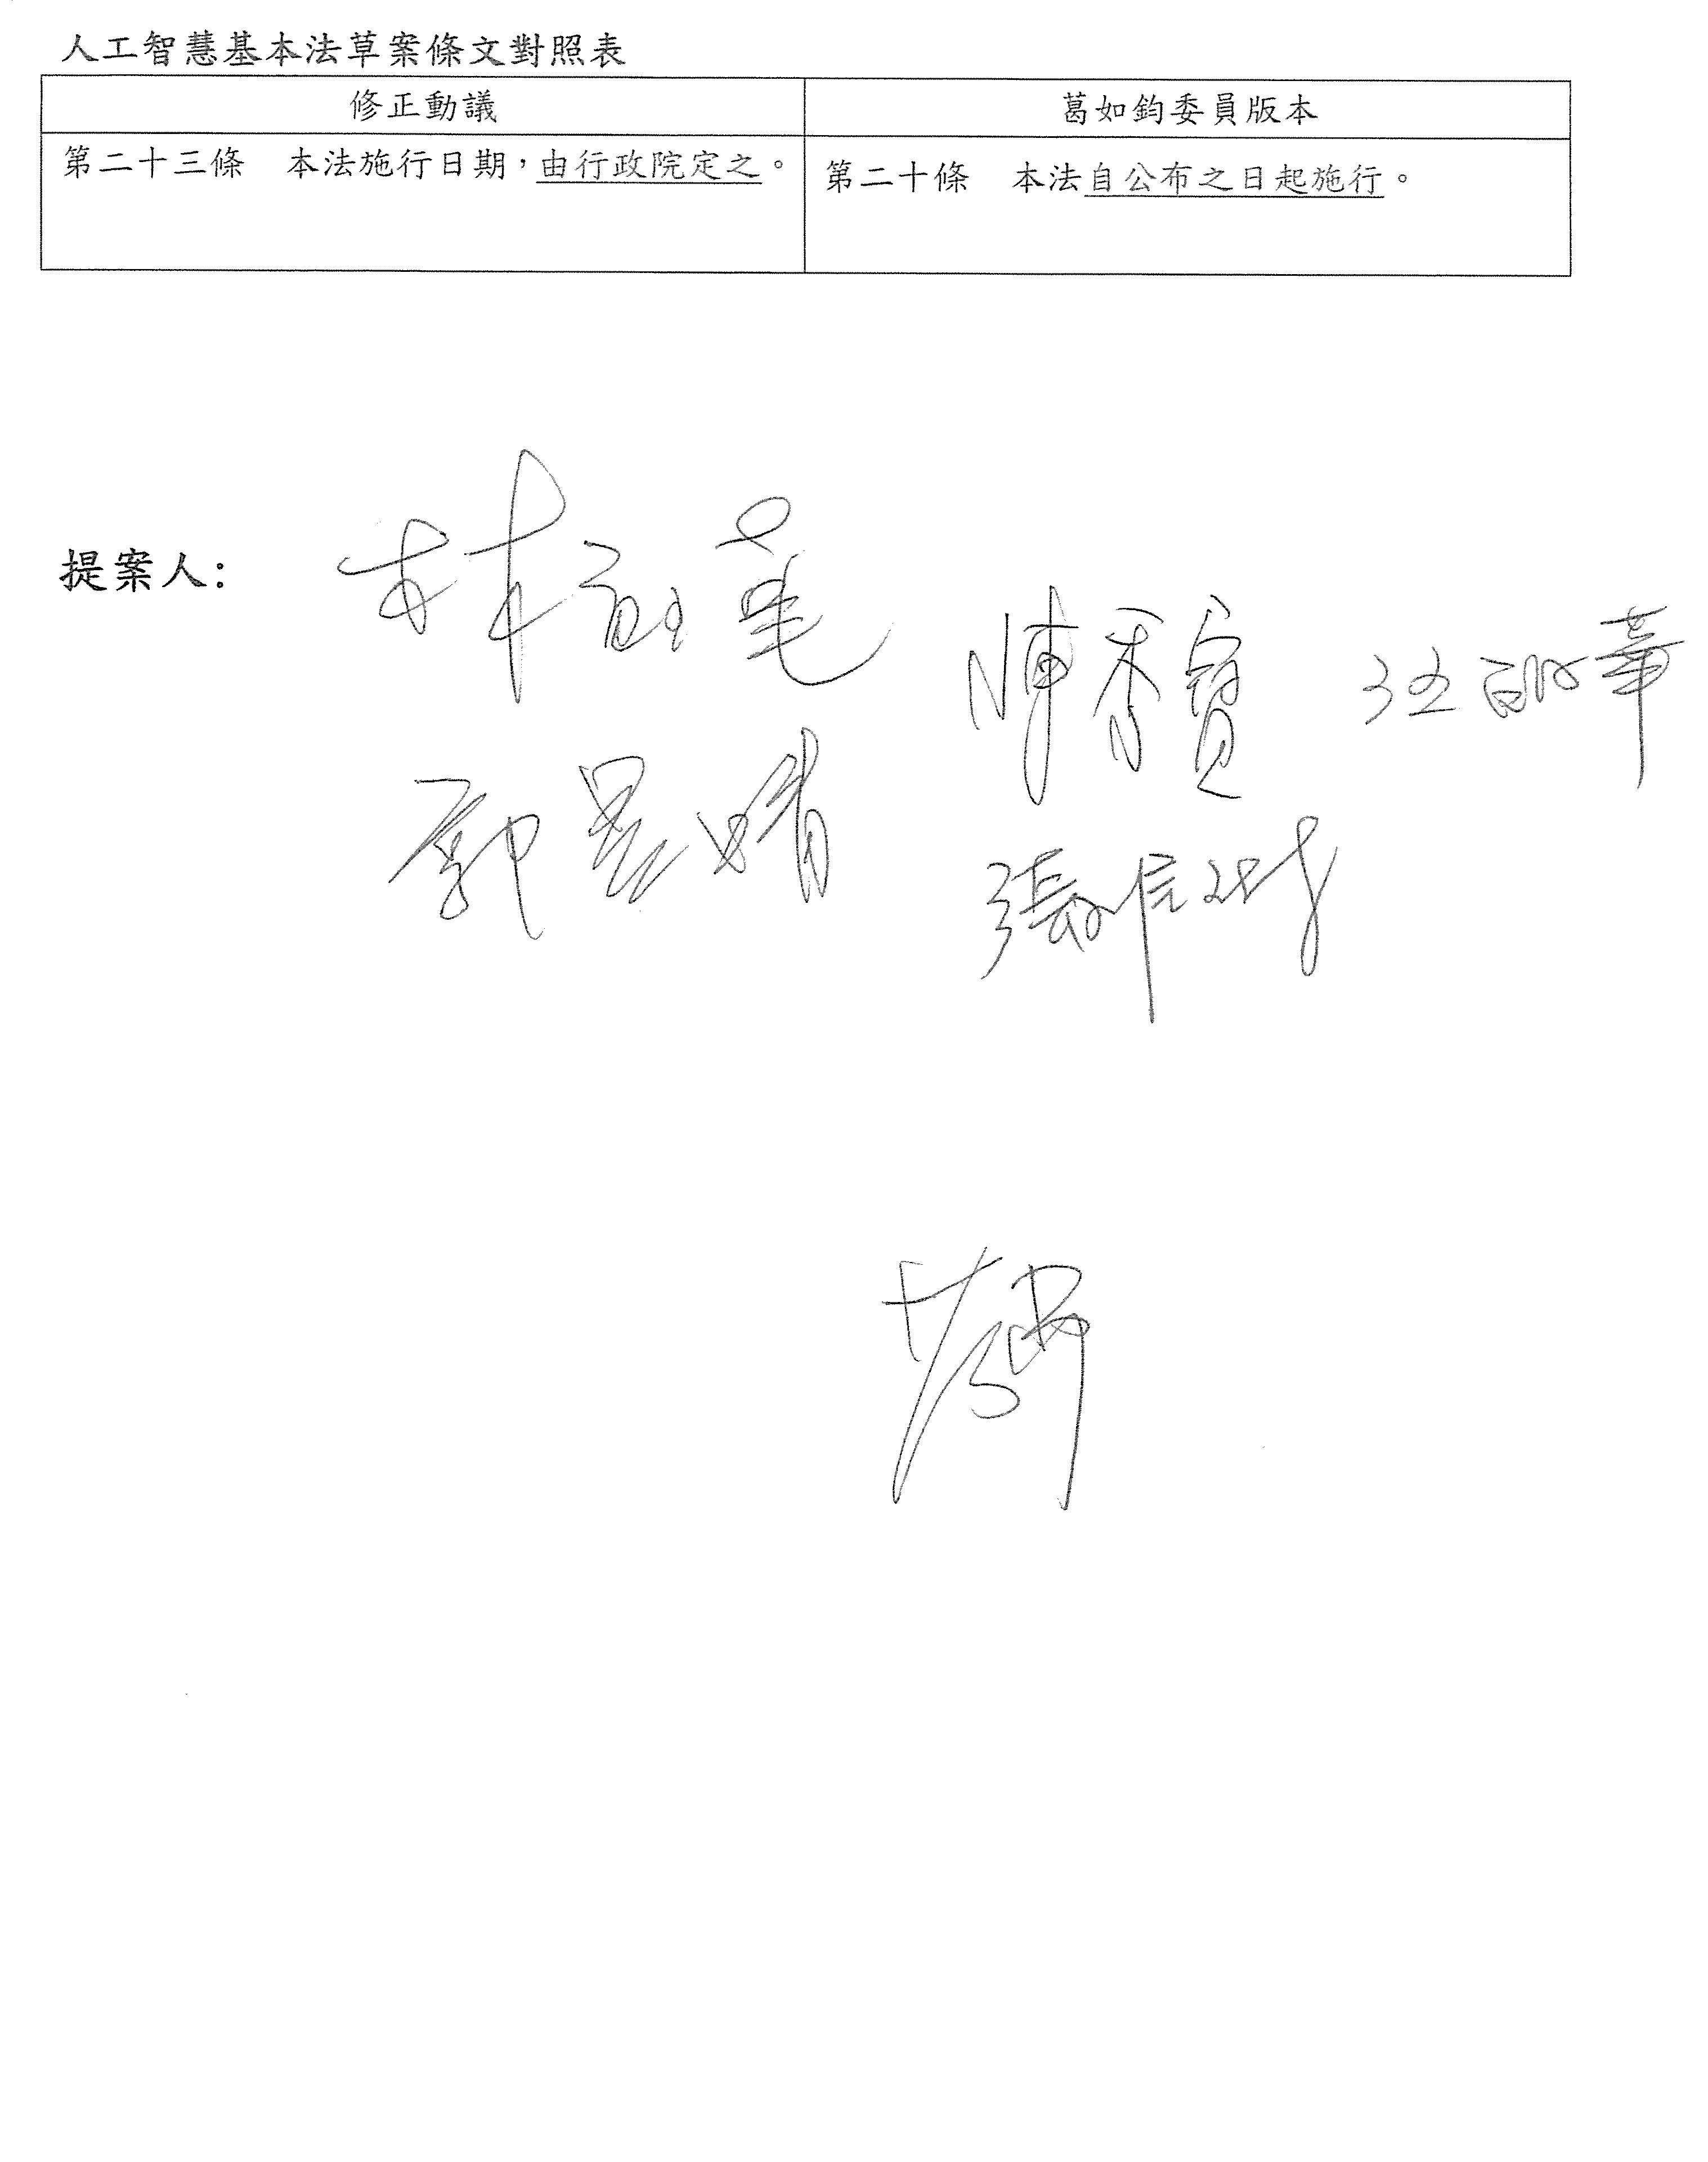 人工智慧基本法草案條文對照表
修正動議
葛如鈞委員版本
第二十三條　本法施行日期，由行政院定之。
第二十條　本法自公布之日起施行。
提案人：
陳秀寳
郭昱晴